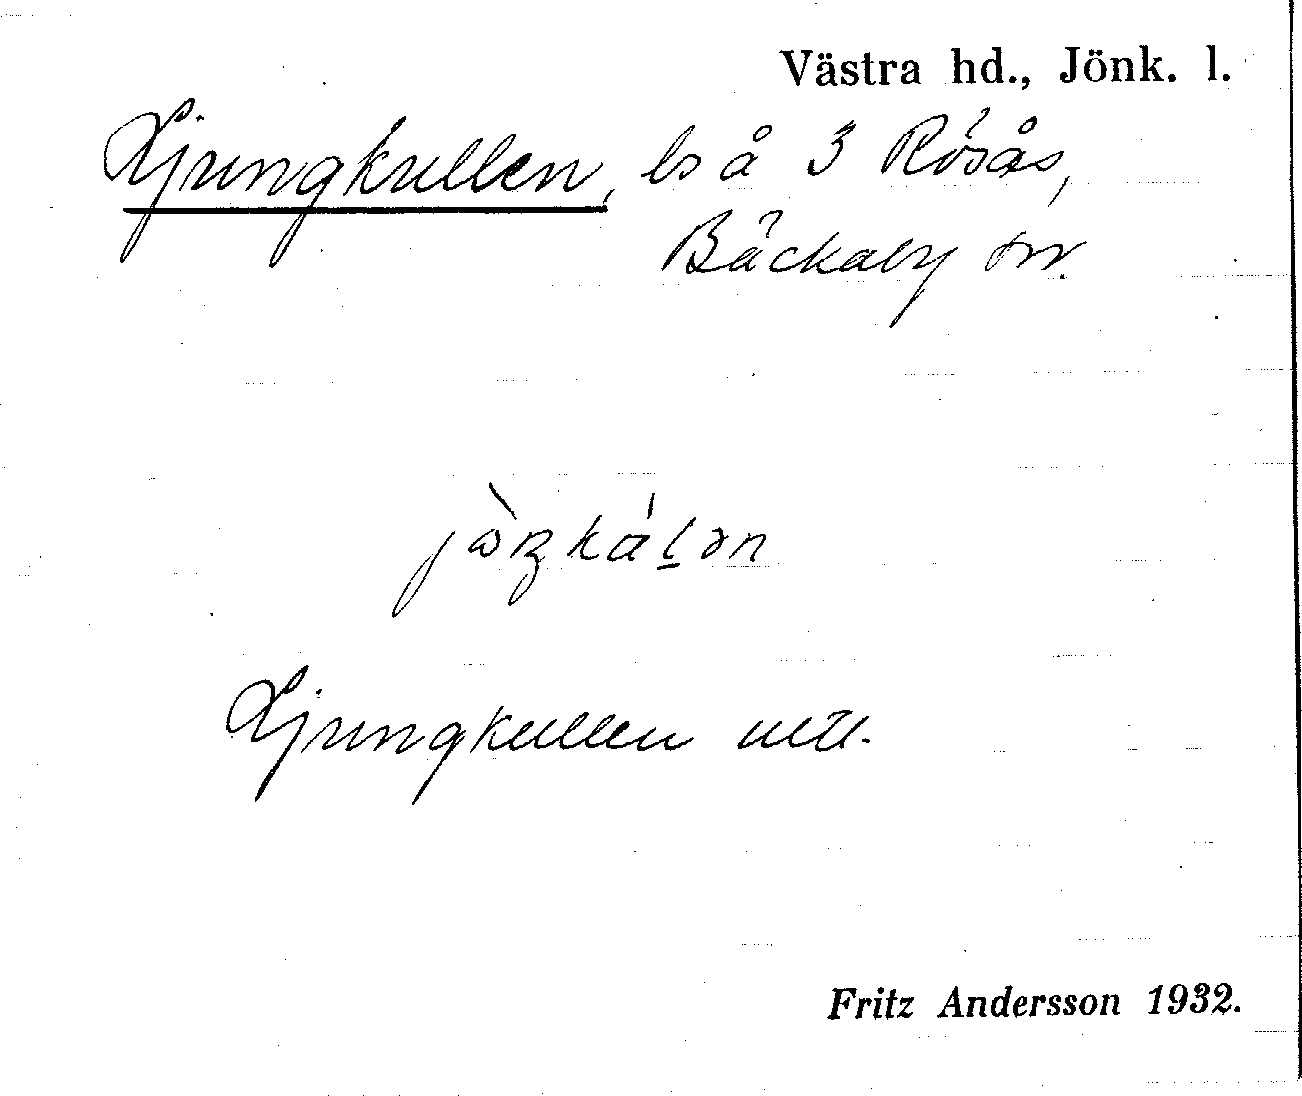 Västra hd., Jönk. l.
Ljungkullen, ls å 3 Rösås,
Bäckaby sn.
Ljungkullen
Fritz Andersson 1932.